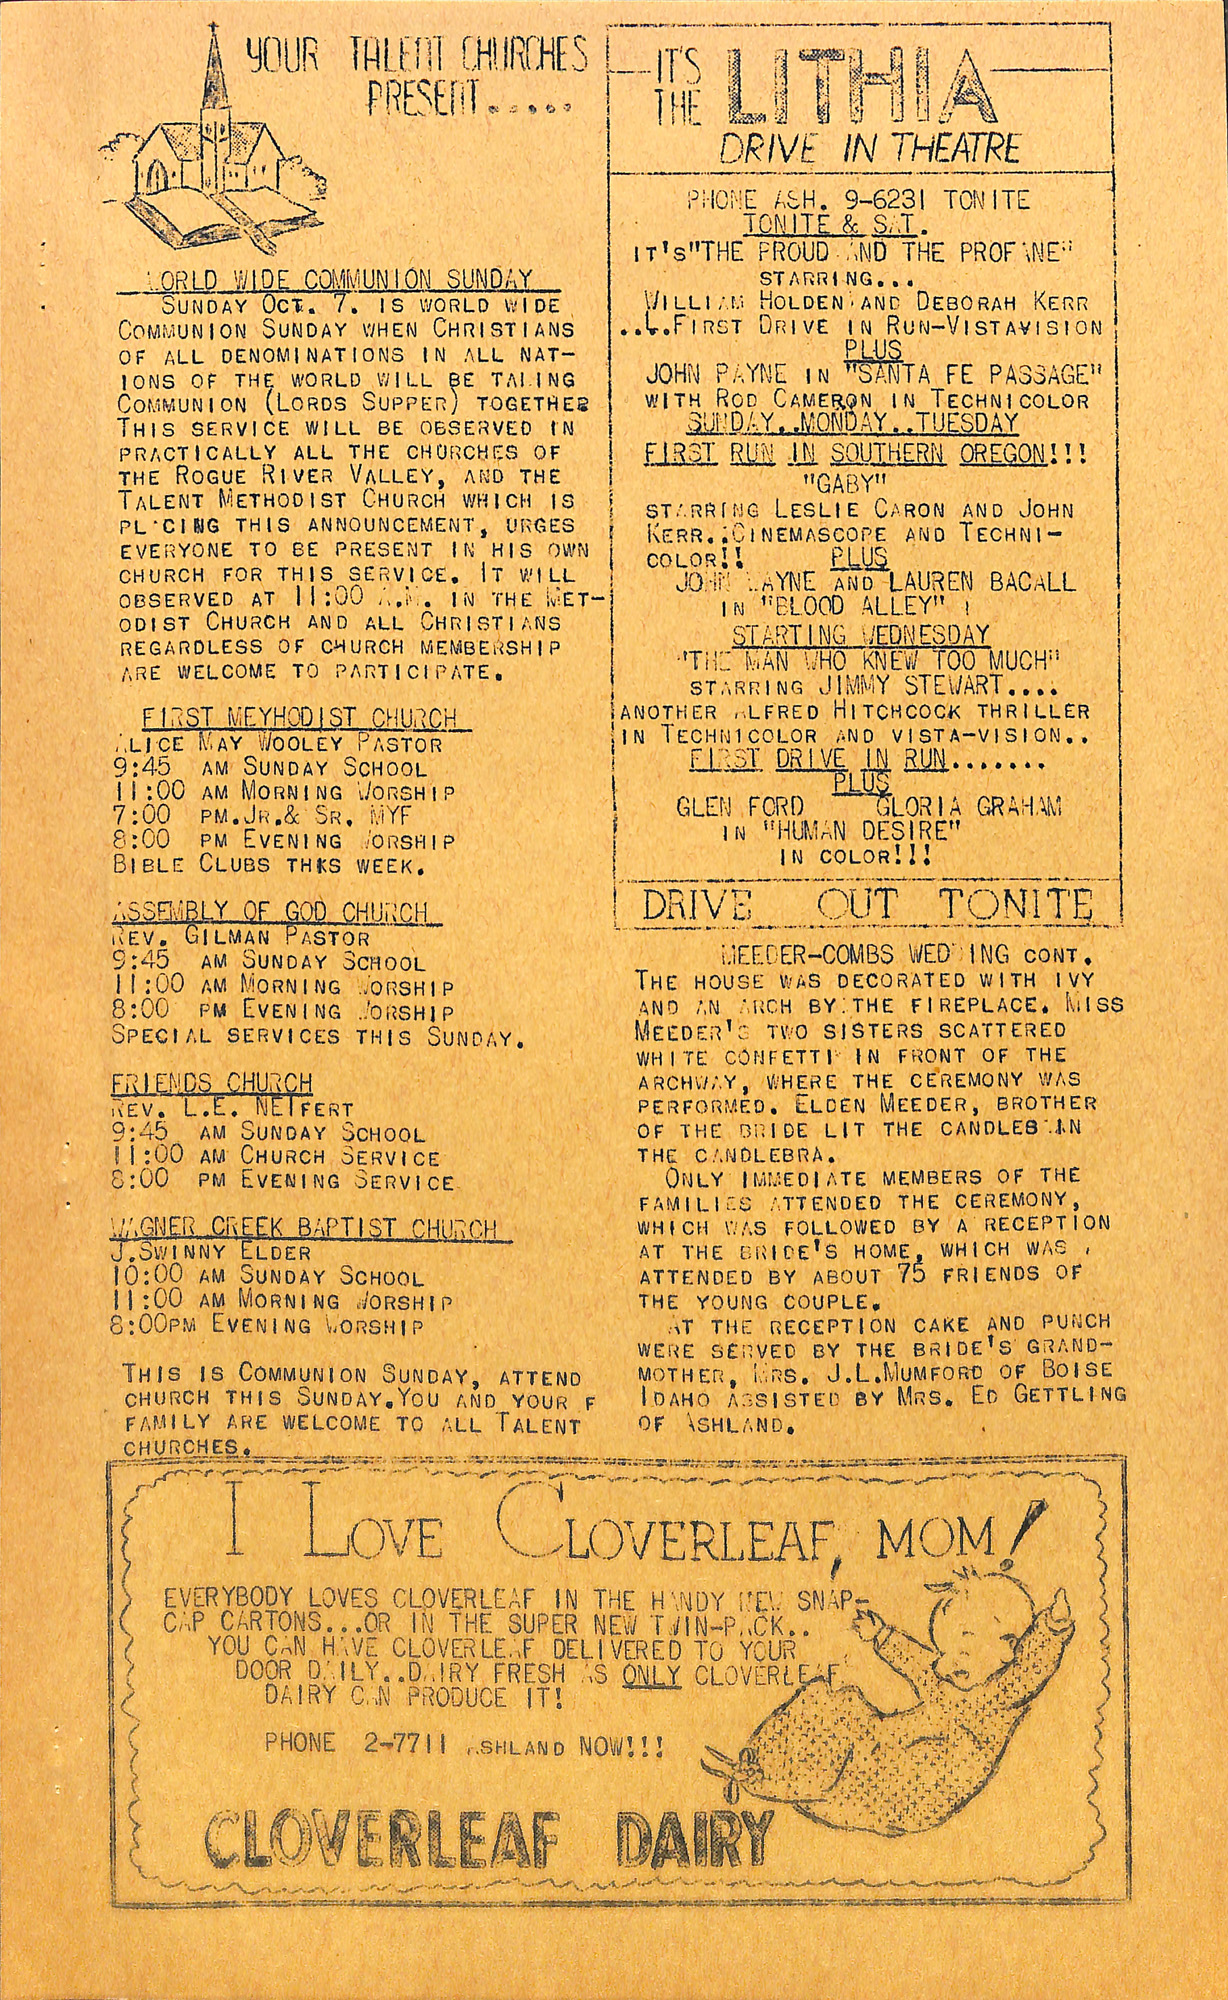 YOUR TALENT CHURCHES
PRESENT.....
WORLD WIDE COMMUNION SUNDAY
SUNDAY OCT. 7. IS WORLD WIDE
COMMUNION SUNDAY WHEN CHRISTIANS
OF ALL DENOMINATIONS IN ALL NAT-
IONS OF THE WORLD WILL BE TAKING
COMMUNION (LORDS SUPPER) TOGETHER
THIS SERVICE WILL BE OBSERVED IN
PRACTICALLY ALL THE CHURCHES OF
THE ROGUE RIVER VALLEY, AND THE
TALENT METHODIST CHURCH WHICH IS
PLACING THIS ANNOUNCEMENT, URGES
EVERYONE TO BE PRESENT IN HIS OWN
CHURCH FOR THIS SERVICE. IT WILL
OBSERVED AT 11:00 A.M. IN THE MET-
ODIST CHURCH AND ALL CHRISTIANS
REGARDLESS OF CHURCH MEMBERSHIP
ARE WELCOME TO PARTICIPATE.
FIRST MEYHODIST CHURCH
ALICE MAY WOOLEY PASTOR
9:45 AM SUNDAY SCHOOL
11:00 AM MORNING WORSHIP
7:00 PM.JR.& SR. MYF
8:00 PM EVENING WORSHIP
BIBLE CLUBS THKS WEEK.
ASSEMBLY OF GOD CHURCH
REV. GILMAN PASTOR
9:45 AM SUNDAY SCHOOL
11:00 AM MORNING WORSHIP
8:00 PM EVENING WORSHIP
SPECIAL SERVICES THIS SUNDAY.
FRIENDS CHURCH
REV. L.E. NEIFERT
9:45 AM SUNDAY SCHOOL
11:00 AM CHURCH SERVICE
8:00 PM EVENING SERVICE
WAGNER CREEK BAPTIST CHURCH
J.SWINNY ELDER
10:00 AM SUNDAY SCHOOL
11:00 AM MORNING WORSHIP
8:00PM EVENING WORSHIP
THIS IS COMMUNION SUNDAY, ATTEND
CHURCH THIS SUNDAY.YOU AND YOUR F
FAMILY ARE WELCOME TO ALL TALENT
CHURCHES.
IT'S THE LITHIA
DRIVE IN THEATRE
PHONE ASH. 9-6231 TONITE
TONITE & SAT.
IT'S"THE PROUD AND THE PROFANE"
STARRING...
WILLIAM HOLDEN AND DEBORAH KERR
....FIRST DRIVE IN RUN-VISTAVISION
PLUS
JOHN PAYNE IN "SANTA FE PASSAGE"
WITH ROD CAMERON IN TECHNICOLOR
SUNDAY..MONDAY..TUESDAY
FIRST RUN IN SOUTHERN OREGON!!!
"GABY"
STARRING LESLIE CARON AND JOHN
KERR..CINEMASCOPE AND TECHNI-
COLOR!! PLUS
JOHN WAYNE AND LAUREN BACALL
IN "BLOOD ALLEY" !
STARTING WEDNESDAY
"THE MAN WHO KNEW TOO MUCH"
STARRING JIMMY STEWART....
ANOTHER ALFRED HITCHCOCK THRILLER
IN TECHNICOLOR AND VISTA-VISION..
FIRST DRIVE IN RUN.......
PLUS
GLEN FORD GLORIA GRAHAM
IN "HUMAN DESIRE"
IN COLOR!!!
DRIVE OUT TONITE
MEEDER-COMBS WEDDING CONT.
THE HOUSE WAS DECORATED WITH IVY
AND AN ARCH BY THE FIREPLACE. MISS
MEEDER'S TWO SISTERS SCATTERED
WHITE CONFETTI IN FRONT OF THE
ARCHWAY, WHERE THE CEREMONY WAS
PERFORMED. ELDEN MEEDER, BROTHER
OF THE BRIDE LIT THE CANDLES IN
THE CANDLEBRA.
ONLY IMMEDIATE MEMBERS OF THE
FAMILIES ATTENDED THE CEREMONY,
WHICH WAS FOLLOWED BY A RECEPTION
AT THE BRIDE'S HOME, WHICH WAS
ATTENDED BY ABOUT 75 FRIENDS OF
THE YOUNG COUPLE.
AT THE RECEPTION CAKE AND PUNCH
WERE SERVED BY THE BRIDE'S GRAND-
MOTHER, MRS. J.L.MUMFORD OF BOISE
IDAHO ASSISTED BY MRS. ED GETTLING
OF ASHLAND.
I LOVE CLOVERLEAF, MOM!
EVERYBODY LOVES CLOVERLEAF IN THE HANDY NEW SNAP-
CAP CARTONS...OR IN THE SUPER NEW TWIN-PACK..
YOU CAN HAVE CLOVERLEAF DELIVERED TO YOUR
DOOR DAILY..DAIRY FRESH AS ONLY CLOVERLEAF
DAIRY CAN PRODUCE IT!
PHONE 2-7711 ASHLAND NOW!!!
CLOVERLEAF DAIRY